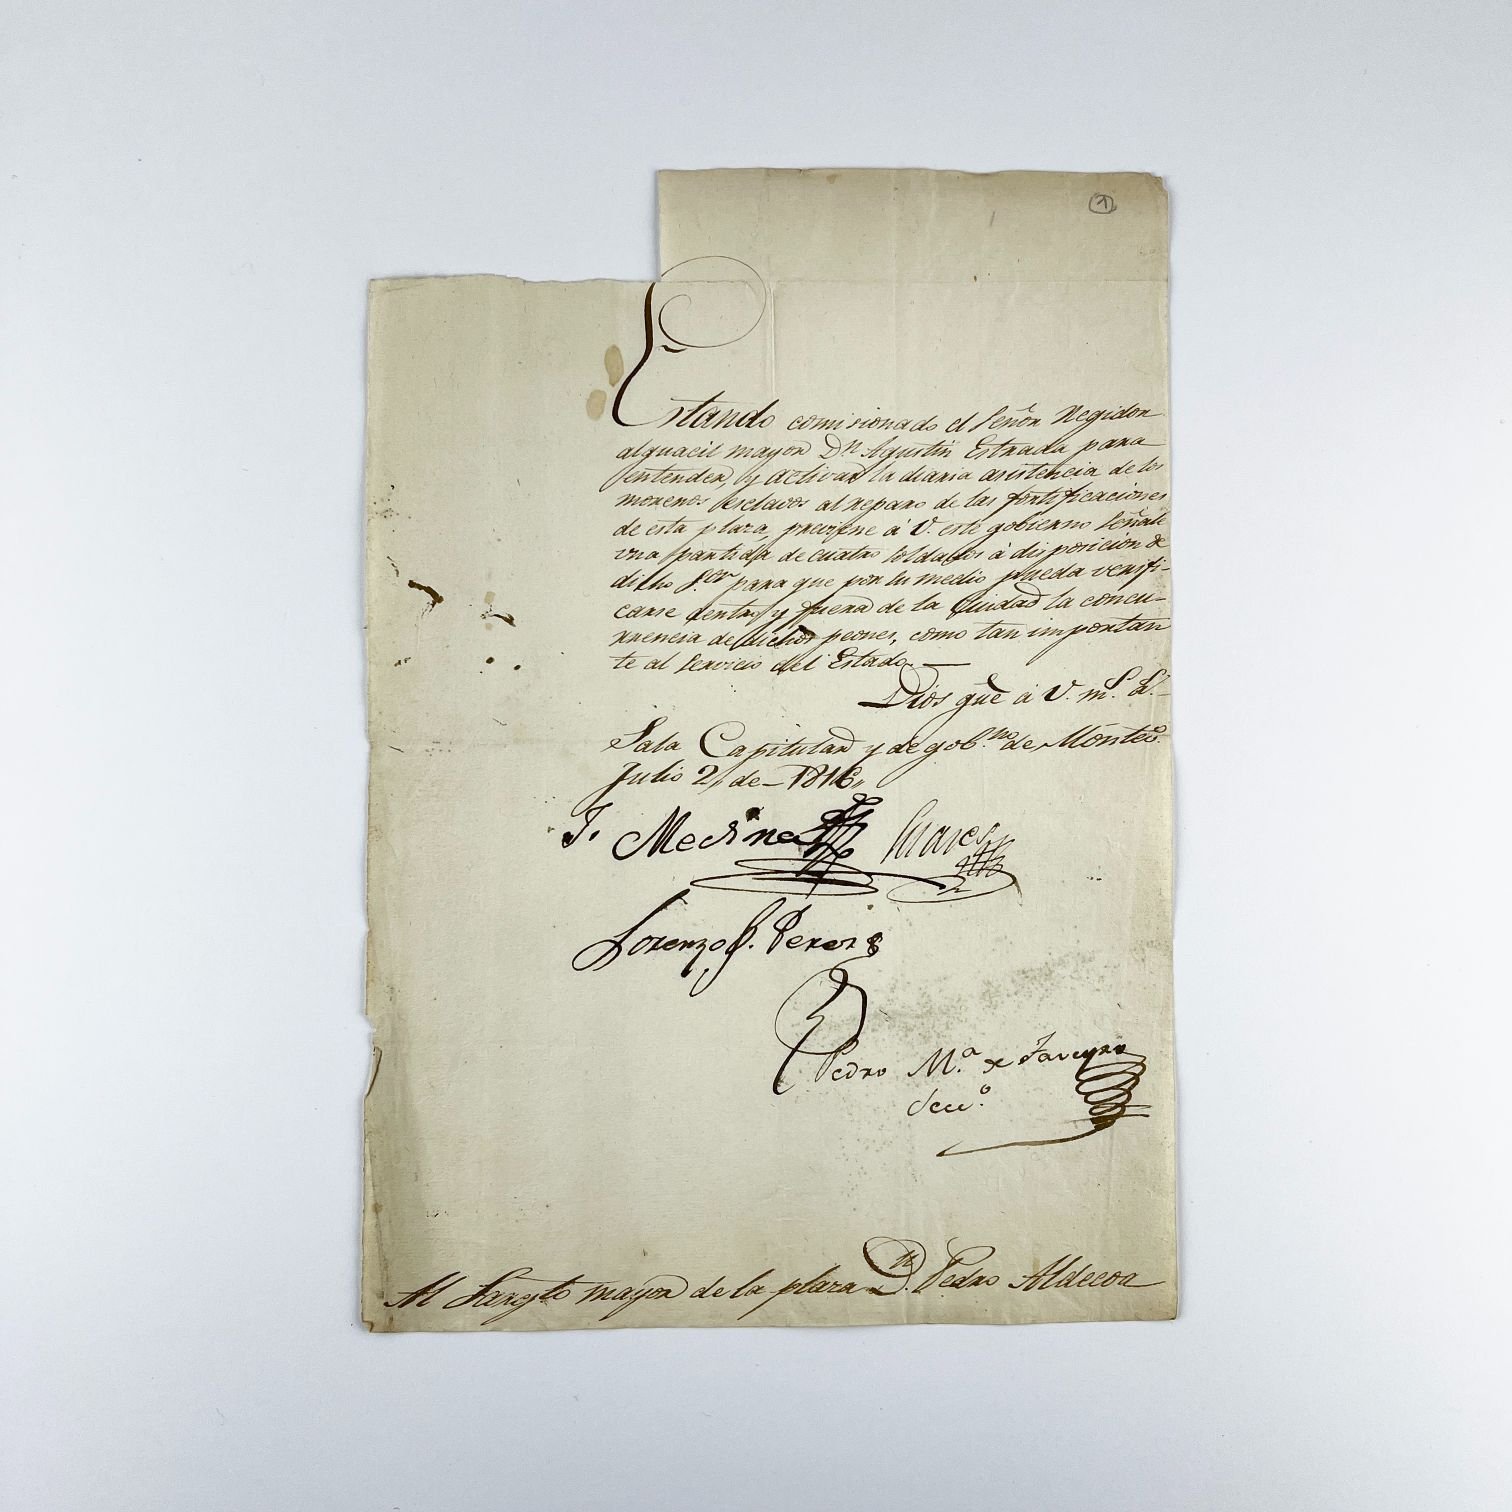 1
Estando comisionado el Señor Regidor
alguacil mayor Dn Agustin Estrada para
entender, y activar la diaria asistencia de los
morenos esclavos al reparo de las fortificaciones
de esta plaza, previene á V. este gobierno señale
una partida de cuatro soldados á disposicion de
dicho Sor para que por su medio pueda verifi-
carse dentro y fuera de la Ciudad la concu-
rrencia de dichos peones, como tan importan
te al servicio del Estado. —
Dios gue á V. ms. as.
Sala Capitular y de gob.no de Montevo.
Julio 2, de - 1816,,
J. Medina Suares
Lorenzo J. Perez
Pedro M.a de Taveyro
Secr.o
Al Sargto mayor de la plaza Dn. Pedro Aldecoa